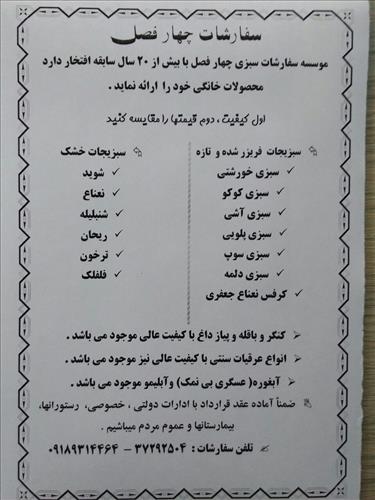 سفارشات چهار فصل
موسسه سفارشات سبزی چهار فصل با بیش از ۲۰ سال سابقه افتخار دارد
محصولات خانگی خود را ارائه نماید .
اول کیفیت ، دوم قیمتها را مقایسه کنید
سبزیجات فریزر شده و تازه
سبزی خورشتی
سبزی کوکو
سبزی آشی
سبزی پلویی
سبزی سوپ
سبزی دلمه
کرفس نعناع جعفری
سبزیجات خشک
شوید
نعناع
شنبلیله
ریحان
ترخون
فلفلک
کنگر و باقله و پیاز داغ با کیفیت عالی موجود می باشد .
انواع عرقیات سنتی با کیفیت عالی نیز موجود می باشد .
آبغوره( عسگری بی نمک) وآبلیمو موجود می باشد .
ضمناً آماده عقد قرارداد با ادارات دولتی ، خصوصی، رستورانها،
بیمارستانها و عموم مردم میباشیم .
تلفن سفارشات : ۳۷۲۹۲۵۰۴ – ۰۹۱۸۹۳۱۴۴۶۴